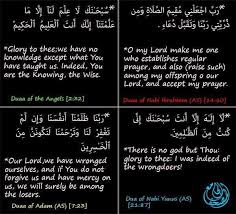 "سُبْحَنَكَ لَا عِلْمَ لَنَا إِلَّا مَا
عَلَّمْتَنَا إِنَّكَ أَنْتَ الْعَلِيمُ الْحَكِيمُ"
"Glory to thee;we have no
knowledge except what You
have taught us. Indeed, You
are the Knowing, the Wise.
Duaa of the Angels [2:32]
"رَبِّ اجْعَلْنِي مُقِيمَ الصَّلَاةِ وَمِن
ذُرِّيَّتِي رَبَّنَا وَتَقَبَّلْ دُعَاءِ.
"O my Lord make me one
who establishes regular
prayer, and also (raise such)
among my offspring o our
Lord, and accept my prayer.
Duaa of Nabi Ibrahiem (AS)
"رَبَّنَا ظَلَمْنَا أَنْفُسَنَا وَإِن لَّمْ
تَغْفِرْ لَنَا وَتَرْحَمْنَا لَنَكُونَنَّ مِنَ
الْخَسِرِينَ
"Our Lord,we have wronged
ourselves, and if You do not
forgive us and have mercy on
us, we will surely be among
the losers.
Duaa of Adam (AS) [7:23]
"لَا إِلَهَ إِلَّا أَنْتَ سُبْحَنَكَ إِنِّي
كُنْتُ مِنَ الظَّالِمِينَ
"There is no god but Thou:
glory to thee: I was indeed
of the wrongdoers!
Duaa of Nabi Yunus (AS)
[21:87]